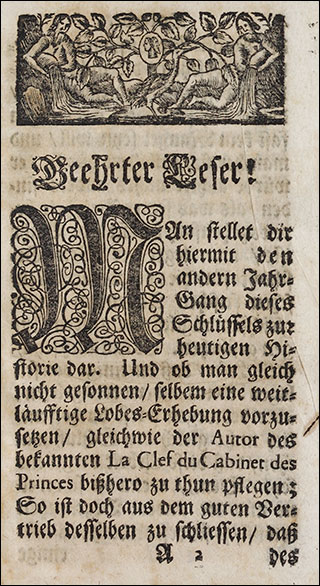 Geehrter Leser!
MAn stellet dir
hiermit den
andern Jahr-
Gang dieses
Schlüssels zur
heutigen Hi-
storie dar. Und ob man gleich
nicht gesonnen/ selbem eine weit-
läufftige Lobes-Erhebung vorzu-
setzen/ gleichwie der Autor des
bekannten La Clef du Cabinet des
Princes bißhero zu thun pflegen;
So ist doch aus dem guten Ver-
trieb desselben zu schliessen/ daß
A 2 des